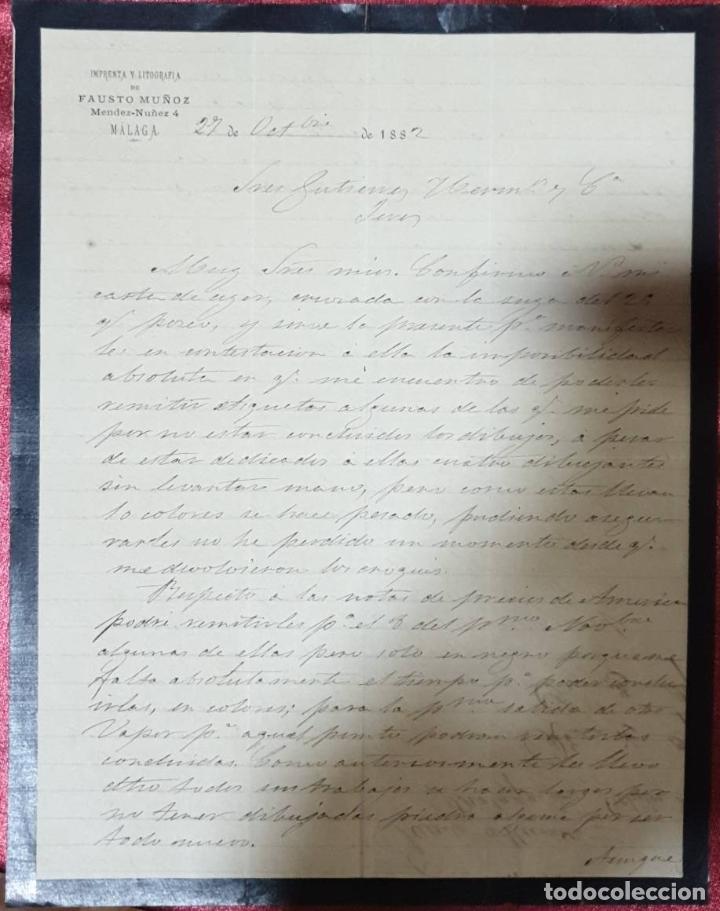 IMPRENTA Y LITOGRAFIA
DE
FAUSTO MUÑOZ
Mendez-Nuñez 4
MÁLAGA
27 de Octbre de 1882
Sres Gutierrez Hermos y Ca
Jerez
Muy Sres mios. Confirmo á Vs mi
carta de ayer, cruzada con la suya del 25
q. poseo, y sirve la presente pa manifestar
les en contestacion á ella la imposibilidad
absoluta en q. me encuentro de poderles
remitir etiquetas algunas de las q. me pide
por no estar concluidos los dibujos, á pesar
de estar dedicados á ellas cuatro dibujantes
sin levantar mano, pero como estas llevan
10 colores se hace pesado, pudiendo asegu-
rarles no he perdido un momento desde q.
me devolvieron los croquis.
Respecto á las notas de precios de America
podré remitirles pa el 3 del pmo Novbre
algunas de ellas pero solo en negro porque me
falta absolutamente el tiempo pa poder conclu
irlas, en colores; para la pma salida de otro
Vapor pa aquel punto podran remitirlas
concluidas. Como anteriormente les llevo
dho todos sus trabajos se hacen largos por
no tener dibujadas piedra alguna por ser
todo nuevo.
Aunque
todocoleccion.net